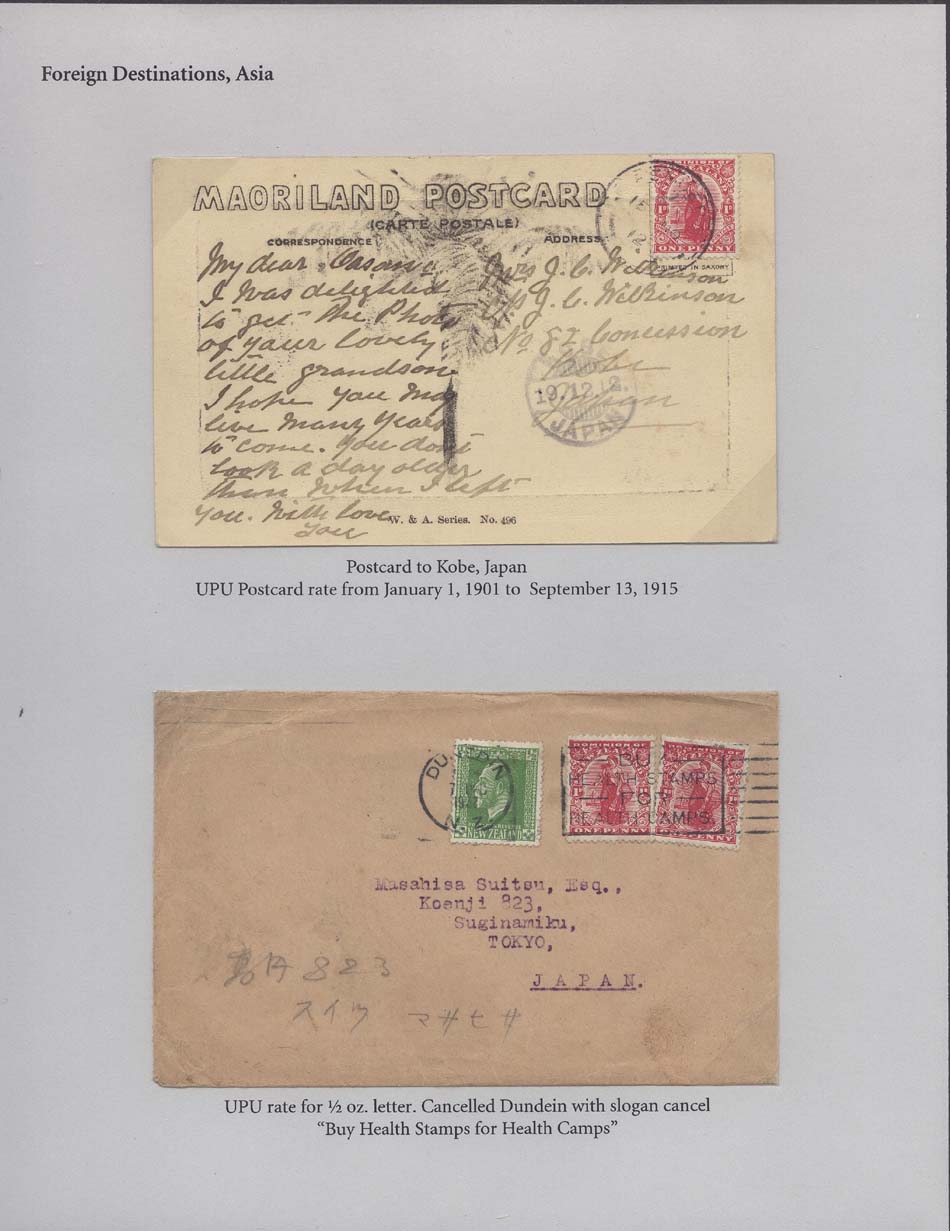 Foreign Destinations, Asia
MAORILAND POSTCARD
(CARTE POSTALE)
CORRESPONDENCE
ADDRESS
DOMINION OF
1D 1D
ONE PENNY
PRINTED IN SAXONY
My dear
I was delighted
to get the Photo
of your lovely
little grandson
I hope you may
live many years
to come. You dont
look a day older
than when I left
you. With love
Mrs J. C. Wilkinson
J. C. Wilkinson
No 82 Concession
Kobe
Japan
19.12.12.
JAPAN
W. & A. Series. No. 496
Postcard to Kobe, Japan
UPU Postcard rate from January 1, 1901 to September 13, 1915
DUNEDIN
N.Z.
NEW ZEALAND
DOMINION OF
ONE PENNY
ONE PENNY
BUY
HEALTH STAMPS
FOR
HEALTH CAMPS.
Masahisa Suitsu, Esq.,
Koenji 823,
Suginamiku,
TOKYO,
JAPAN.
823
スイツ マサヒサ
UPU rate for ½ oz. letter. Cancelled Dundein with slogan cancel
“Buy Health Stamps for Health Camps”